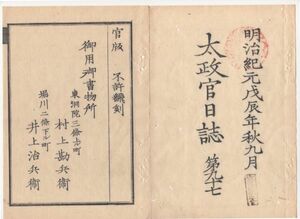 明治紀元戊辰年秋九月
太政官日誌 第九十七
官版 不許飜刻
御用御書物所
東洞院三條上ル町
村上勘兵衛
堀川二條下ル町
井上治兵衛